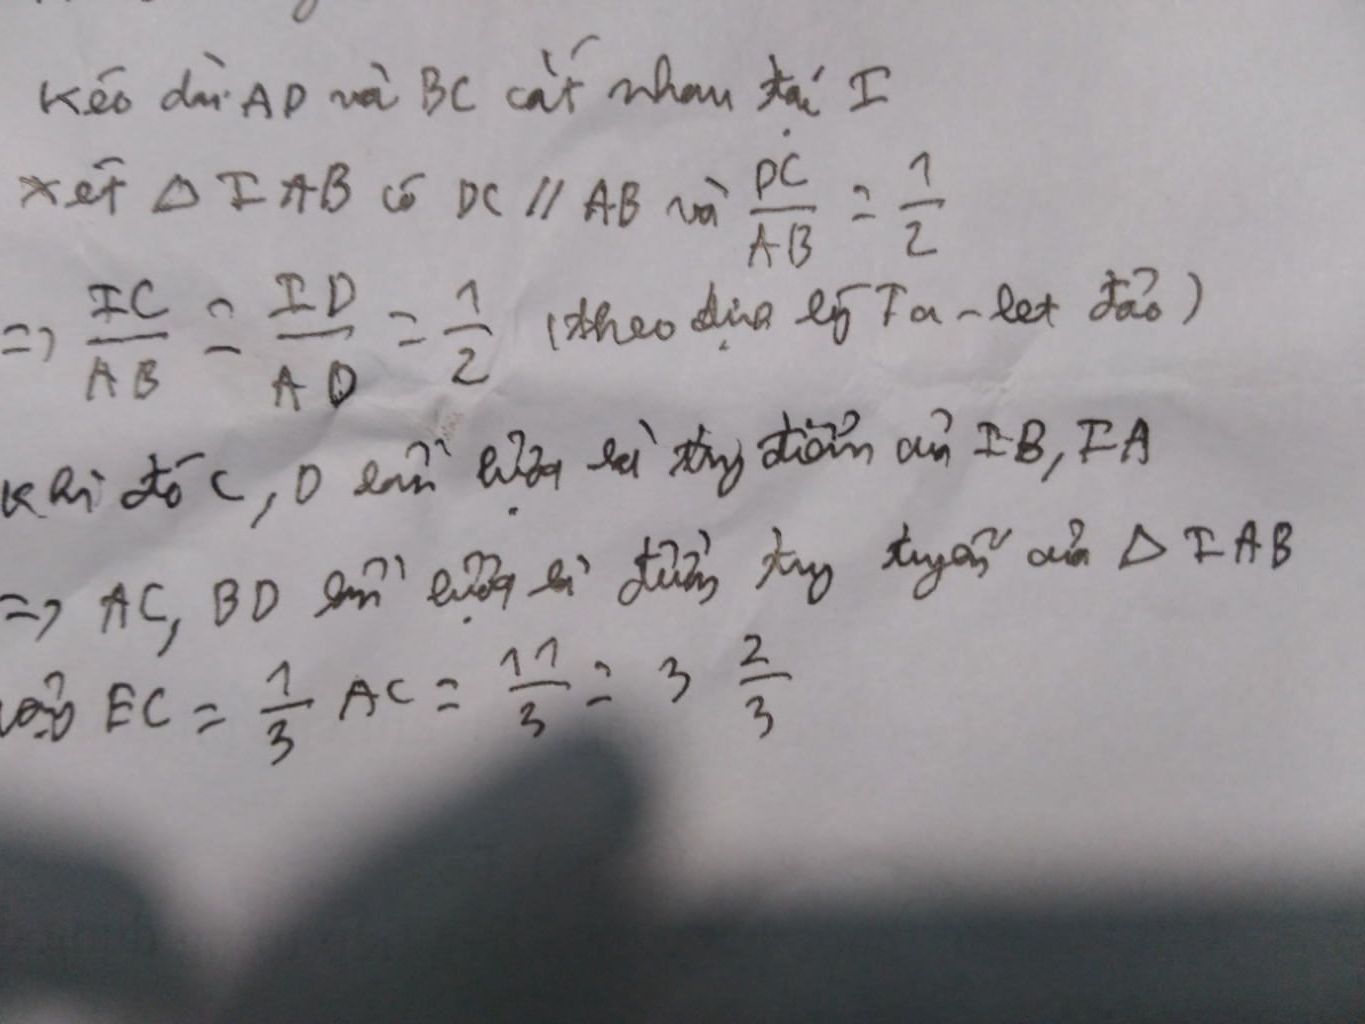 Kéo dài AD và BC cắt nhau tại I
Xét △ IAB có DC // AB và DC/AB = 1/2
=> IC/AB = ID/AD = 1/2 (theo định lý Ta-let đảo)
Khi đó C, D lần lượt là trung điểm của IB, IA
=> AC, BD lần lượt là đường trung tuyến của △ IAB
Vậy EC = 1/3 AC = 11/3 = 3 2/3